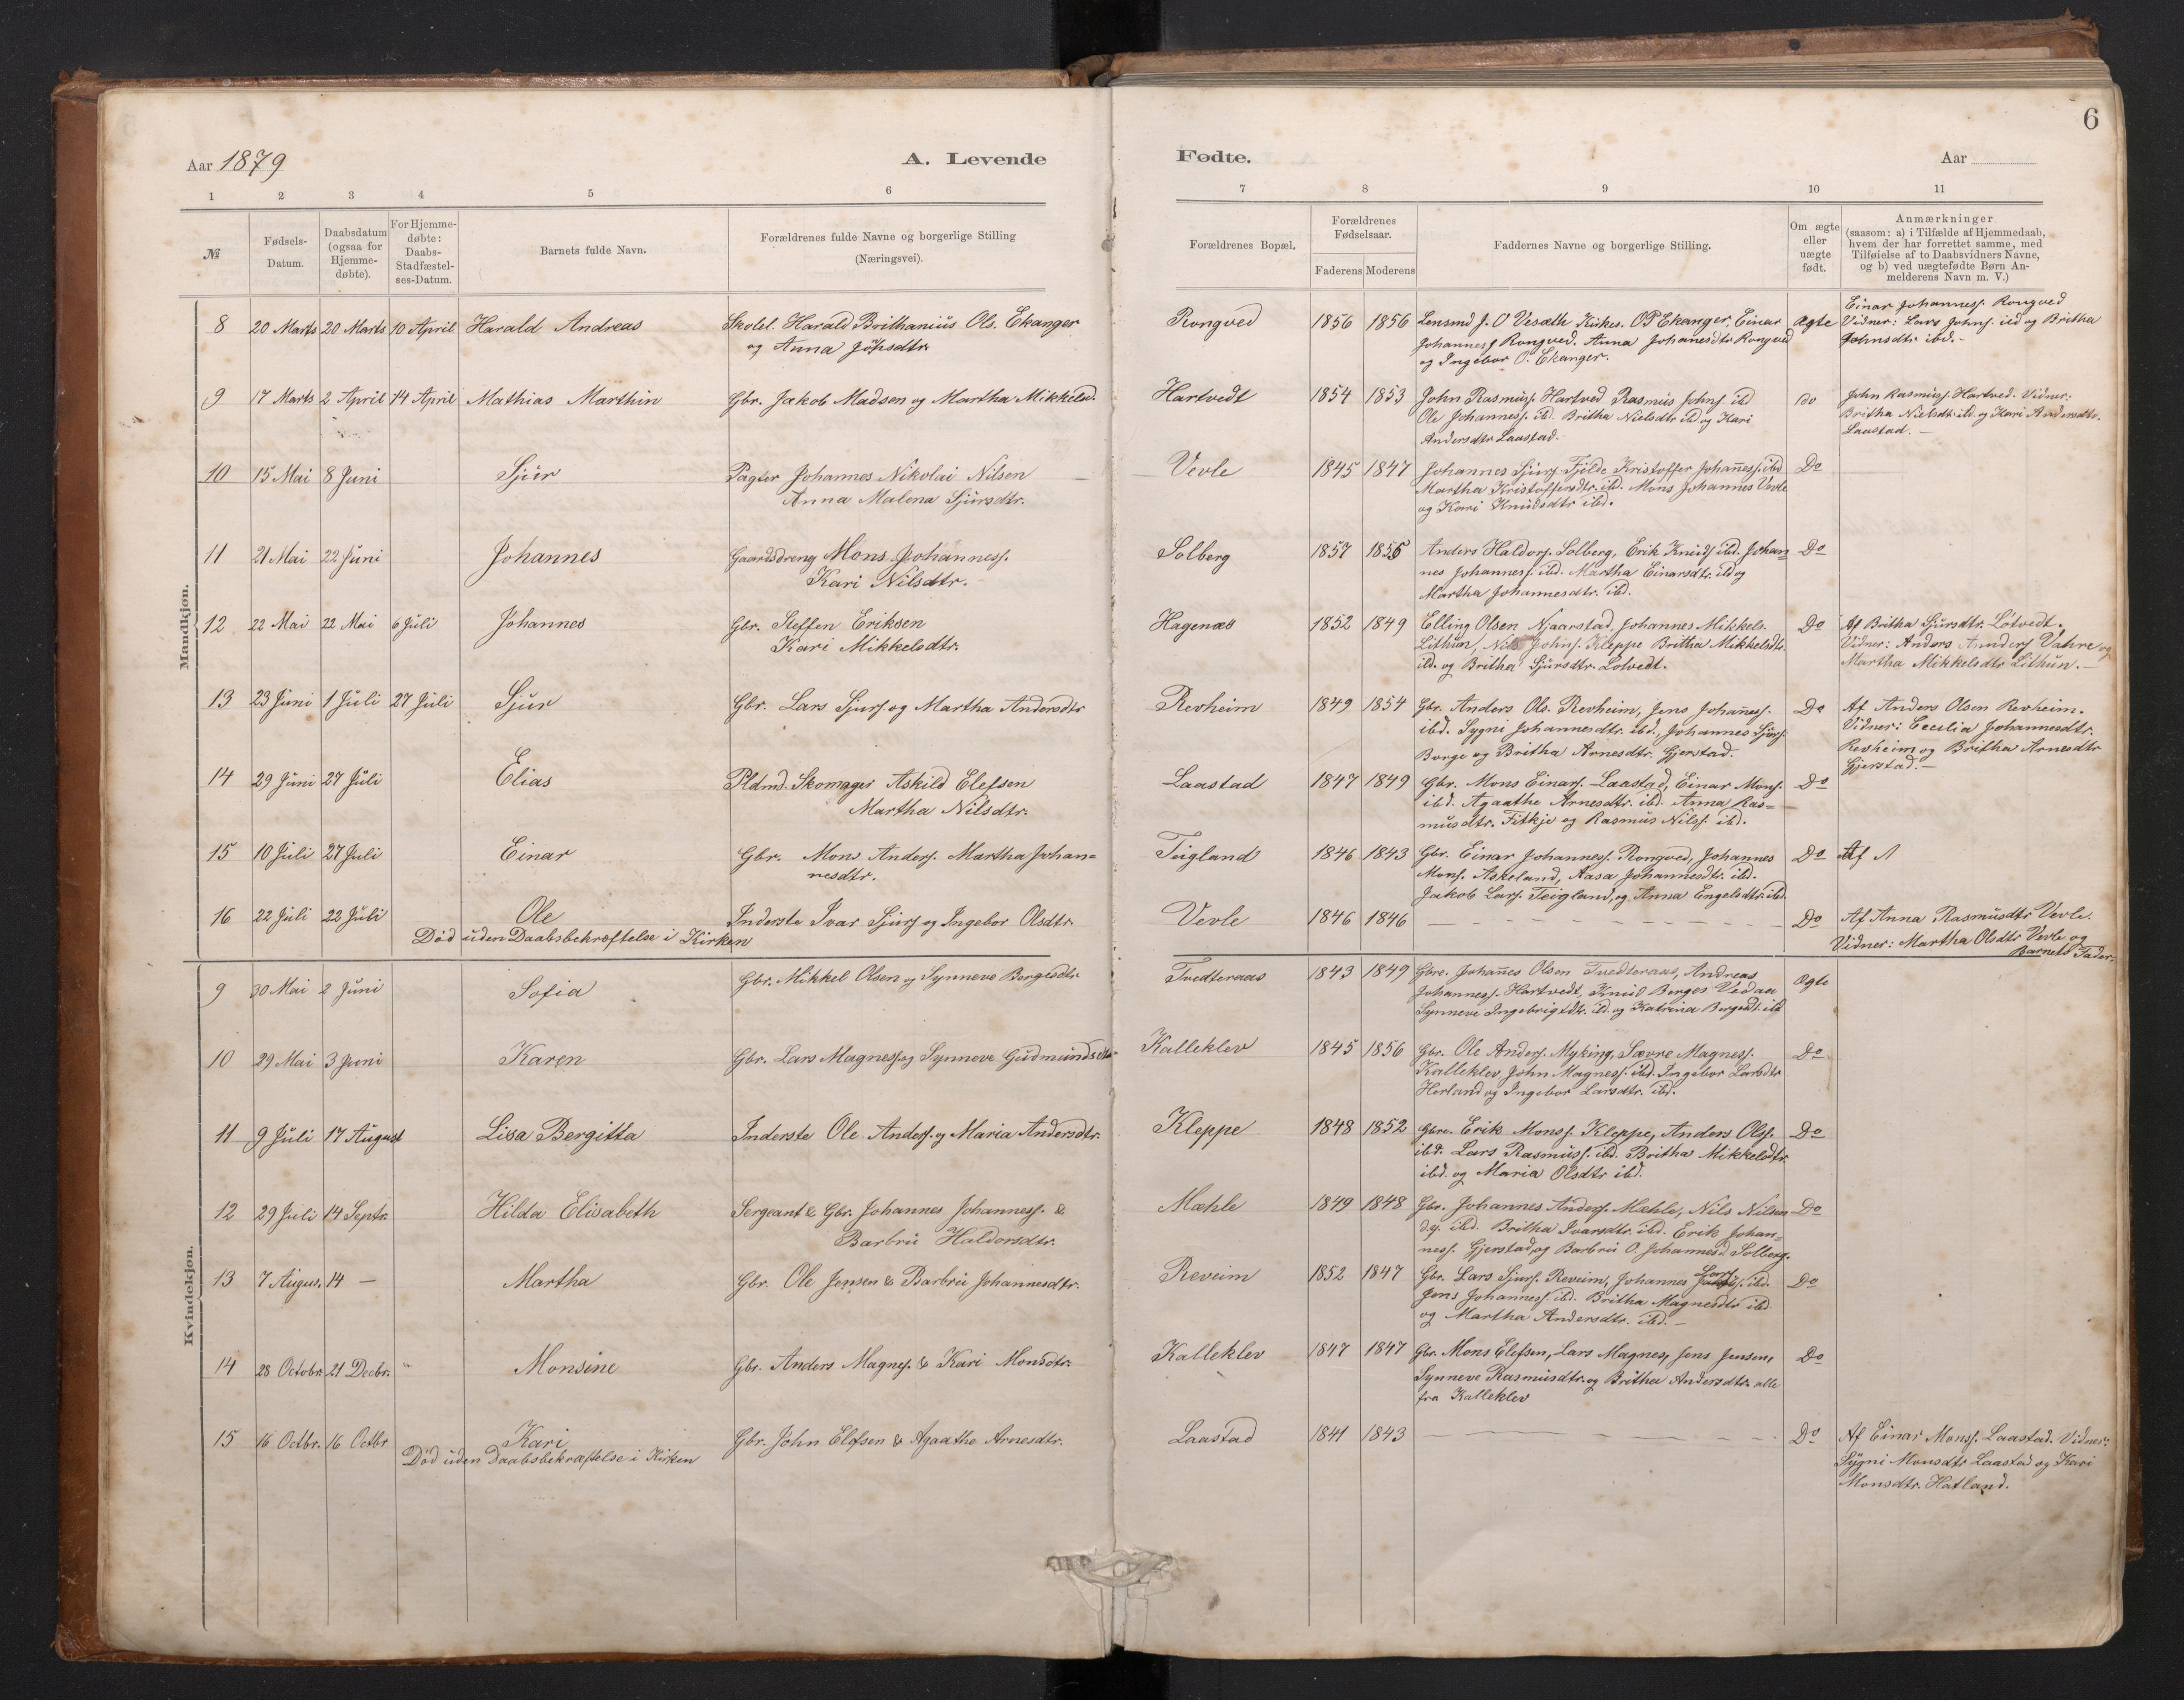 6
Aar 1879
A. Levende
Fødte.
Aar
1 2 3 4 5 6 7 8 9 10 11
№
Fødsels-
Datum.
Daabsdatum
(ogsaa for
Hjemme-
døbte).
For Hjemme-
døbte:
Daabs-
Stadfæstel-
ses-Datum.
Barnets fulde Navn.
Forældrenes fulde Navne og borgerlige Stilling
(Næringsvei).
Forældrenes Bopæl.
Forældrenes
Fødselsaar.
Faderens Moderens
Faddernes Navne og borgerlige Stilling.
Om ægte
eller
uægte
født.
Anmærkninger
(saasom: a) i Tilfælde af Hjemmedaab,
hvem der har forrettet samme, med
Tilføielse af to Daabsvidners Navne,
og b) ved uægtefødte Børn An-
melderens Navn m. V.)
Mandkjøn.
8 20 Marts 20 Marts 10 April Harald Andreas
Skolel. Harald Brithanius Ols. Ekanger
og Anna
Rongved 1856 1856
Lensmd J. O Vesæth Kirkes. OP Ekanger, Einar
Johanness Rongved. Anna Johanesdtr Rongved
og Ingebor O. Ekanger.
Ægte
Einar Johanness. Rongved
Vidner: Lars Johns. ibd og Britha
Johnsdtr ibd.-
9 17 Marts 2 April 14 April Mathias Marthin
Gbr. Jakob Madsen og Martha Mikkelsd.
Hartvedt 1854 1853
John Rasmuss. Hartved Rasmus Johns ibd
Ole Johanness. ibd. Britha Nielsdtr ibd og Kari
Andersdtr Laastad.
Do
John Rasmuss Hartved. Vidner:
Britha Nielsdt ibd. og Kari Andersdtr.
Laastad. -
10 15 Mai 8 Juni Sjur
Pagter Johannes Nikolai Nilsen
Anna Malena Sjursdtr.
Vevle 1845 1847
Johannes Sjurs. Fjilde Kristoffer Johaness. ibd
Martha Kristoffersdtr. ibd. Mons Johannes Vevle
og Kari Knudsdtr ibd.
Do
11 21 Mai 22 Juni Johannes
Gaardsdreng Mons Johanness.
Kari Nilsdtr.
Solberg 1857 1855
Anders Haldors. Solberg, Erik Knuds. ibd. Johan-
nes Johanness. ibd. Martha Einarsdtr. ibd og
Martha Johannesdtr. ibd.
Do
12 22 Mai 22 Mai 6 Juli Johannes
Gbr. Steffen Eriksen
Kari Mikkelsdtr.
Hagenæs 1852 1849
Elling Olsen Naarstad, Johannes Mikkels.
Lithun, Nils Johns. Kleppe Britha Mikkelsdtr.
ibd. og Britha Sjursdtr. Lotvedt.
Do
Af Britha Sjursdtr. Lotvedt.
Vidner: Anders Annders Vahre og
Martha Mikkelsdtr Lithun. -
13 23 Juni 1 Juli 27 Juli Sjur
Gbr. Lars Sjurs. og Martha Andersdtr
Revheim 1849 1854
Gbr. Anders Ols. Revheim, Jens Johaness.
ibd. Sygni Johannesdtr. ibd., Johannes Sjurs.
Borge og Britha Arnesdtr. Gjerstad.
Do
Af Anders Olsen Revheim.
Vidner: Cecilia Johannesdtr.
Revheim og Britha Arnesdtr
Gjerstad. -
14 29 Juni 27 Juli Elias
Pldmd. Skomager Askild Elefsen
Martha Nilsdtr.
Laastad 1847 1849
Gbr. Mons Einars. Laastad, Einar Mons.
ibd. Agaathe Arnesdtr. ibd. Anna Ras-
musdtr. Fitkje og Rasmus Nilss. ibd.
Do
15 10 Juli 27 Juli Einar
Gbr. Mons Anders. Martha Johan-
nesdtr.
Teigland 1846 1843
Gbr. Einar Johanness. Rongved, Johannes
Mons. Askeland, Aasa Johannesdtr. ibd.
Jakob Lars. Teigland, og Anna Engelsdtr. ibd.
Do
Af
16 22 Juli 22 Juli Ole
Død uden Daabsbekræftelse i Kirken
Inderste Ivar Sjurs og Ingebor Olsdtr.
Vevle 1846 1846
Do
Af Anna Rasmusdtr Vevle.
Vidner: Martha Olsdtr Vevle og
Barnets Fader.
Kvindekjøn.
9 30 Mai 2 Juni Sofia
Gbr. Mikkel Olsen og Synneve Borgesdtr
Tvedteraas 1843 1849
Gbre. Johanes Olsen Tvedteraas, Andreas
Johanness. Hartvedt, Knud Borges Vedaa
Synneve Ingebrigtdtr. ibd. og Katrina Borgesdt. ibd
Ægte
10 29 Mai 3 Juni Karen
Gbr. Lars Magness og Synneve Gudmundsdtr
Kalleklev 1845 1856
Gbr. Ole Anders. Myking, Sævre Magness.
Kalleklev John Magness. ibd. Ingebor Larsdtr
Herland og Ingebor Larsdtr. ibd.
Do
11 9 Juli 17 August Lisa Bergitta
Inderste Ole Anders. og Maria Andersdtr.
Kleppe 1848 1852
Gbre. Erik Monss. Kleppe, Anders Olss.
ibd. Lars Rasmuss. ibd. Britha Mikkelsdtr.
ibd. og Maria Olsdtr ibd.
Do
12 29 Juli 14 Septr. Hilda Elisabeth
Sergeant & Gbr. Johannes Johanness. &
Barbru Haldorsdtr.
Mæhle 1849 1848
Gbr. Johannes Anders. Mæhle, Nils Nilsen
d.y. ibd. Britha Ivarsdtr. ibd. Erik Johan-
ness. Gjerstad, og Barbru O. Johannesd. Solberg.
Do
13 7 Augus. 14 - Martha
Gbr. Ole Jensen & Barbru Johannesdtr.
Reveim 1852 1847
Gbr. Lars Sjurs. Reveim, Johannes Lars ibd.
Jens Johanness. ibd. Britha Magnesdtr ibd.
og Martha Andersdtr. ibd. -
Do
14 28 Octobr. 21 Decbr. " Monsine
Gbr. Anders Magnes. & Kari Monsdtr.
Kalleklev 1847 1847
Gbr. Mons Elefsen, Lars Magnes, Jens Jensen,
Synneve Rasmusdtr. og Britha Andersdtr. alle
fra Kalleklev
Do
15 16 Octbr. 16 Octbr Kari
Død uden Daabsbekræftelse i Kirken
Gbr. John Elefsen & Agaathe Arnesdtr.
Laastad 1841 1843
Do
Af Einar Monss. Laastad. Vidner:
Sygni Monsdtr Laastad og Kari
Monsdtr. Hatland.